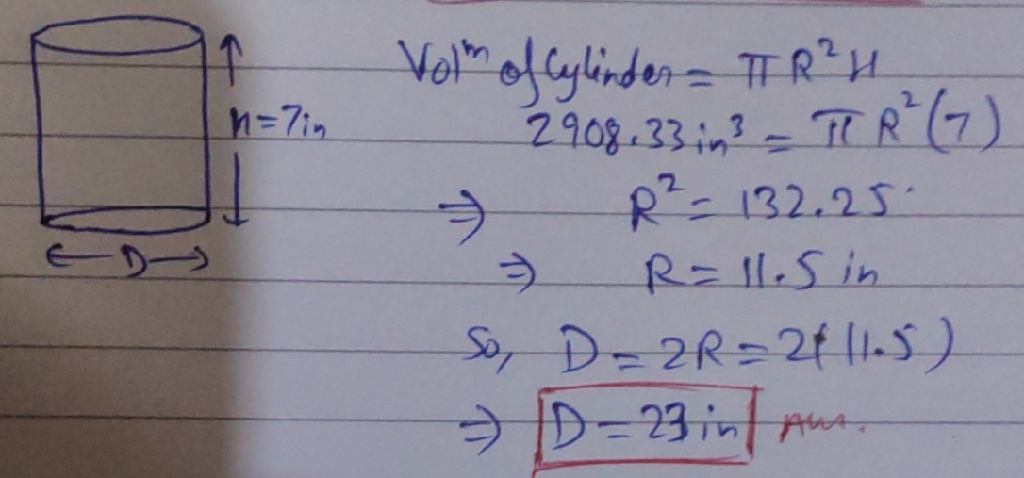 Vol^m of Cylinder = πR²H
h = 7in
2908.33 in³ = πR²(7)
⇒ R² = 132.25
⇒ R = 11.5 in
← D →
So, D = 2R = 2(11.5)
⇒ D = 23 in Ans.